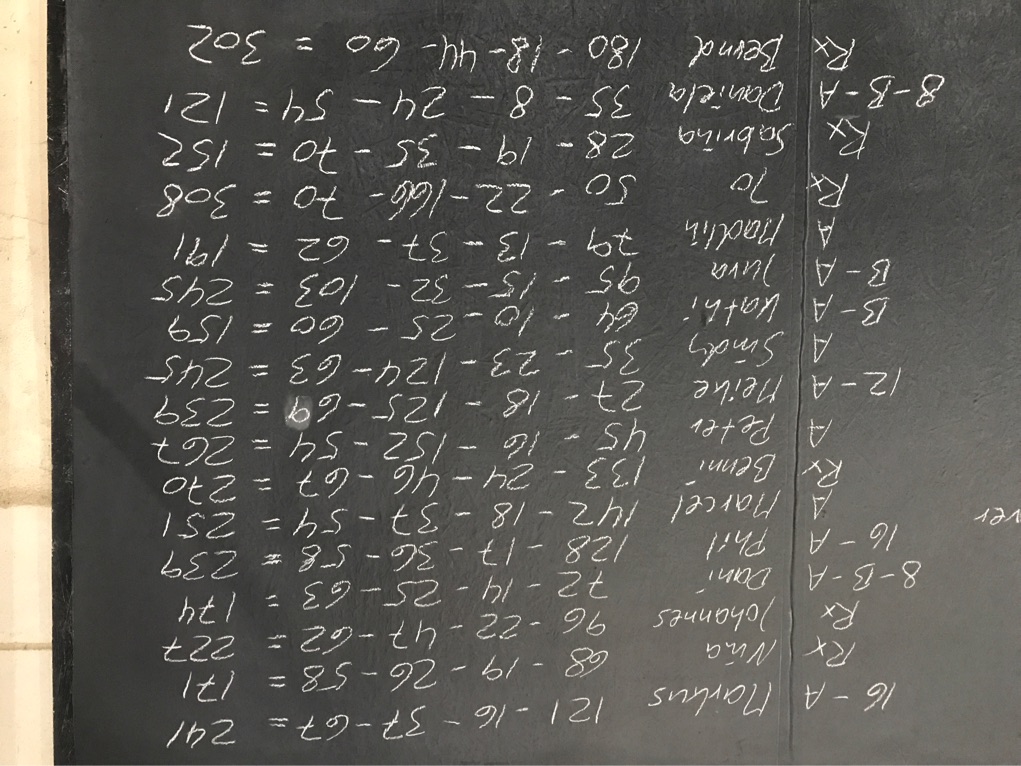 16 - A Markus 121 - 16 - 37 - 67 = 241
Rx Nina 68 - 19 - 26 - 58 = 171
Rx Johannes 96 - 22 - 47 - 62 = 227
8 - B - A Dani 72 - 14 - 25 - 63 = 174
16 - A Phil 128 - 17 - 36 - 58 = 239
ver
A Marcel 142 - 18 - 37 - 54 = 251
Rx Benni 133 - 24 - 46 - 67 = 270
A Peter 45 - 16 - 152 - 54 = 267
12 - A Meike 27 - 18 - 125 - 69 = 239
A Sindy 35 - 23 - 124 - 63 = 245
B - A Kathi 64 - 10 - 25 - 60 = 159
B - A 95 - 15 - 32 - 103 = 245
A Madlin 79 - 13 - 37 - 62 = 191
Rx Jo 50 - 22 - 166 - 70 = 308
Rx Sabrina 28 - 19 - 35 - 70 = 152
8 - B - A Daniela 35 - 8 - 24 - 54 = 121
Rx Bernd 180 - 18 - 44 - 60 = 302